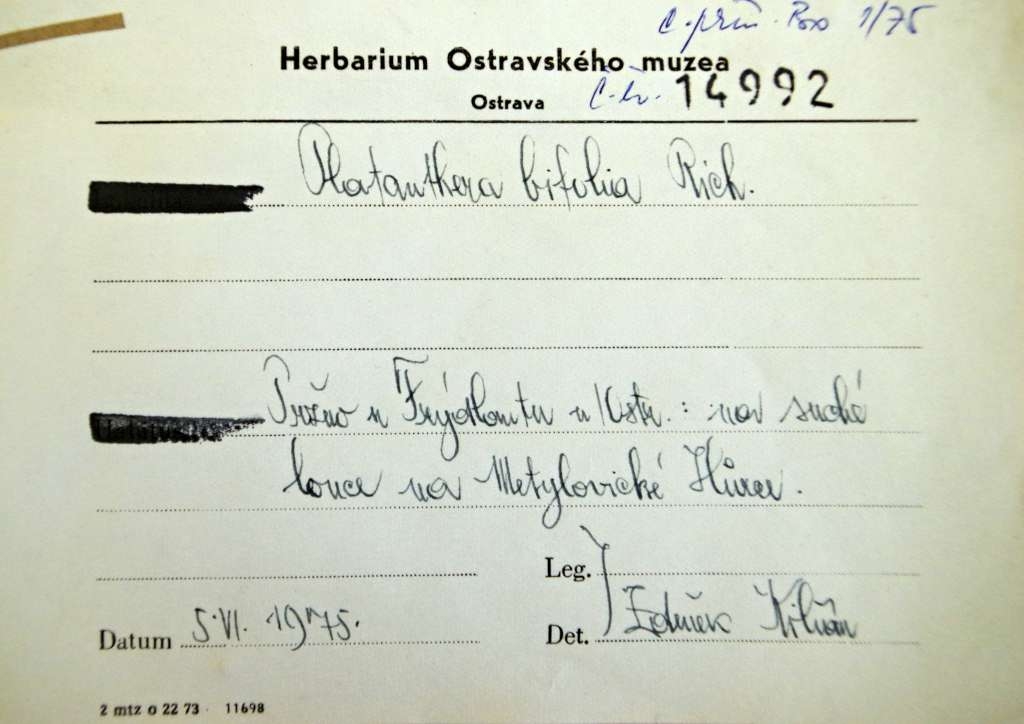 č. přír. Bo 1/75
Herbarium Ostravského muzea
Ostrava č. i. 14992
Platanthera bifolia Rich.
Pržno u Frýdlantu n/Ostr.: na suché
louce na Metylovické Hůrce.
Leg.
Datum 5. VI. 1975.
Det. Zdeněk Kilián
2 mtz o 22 73 11698